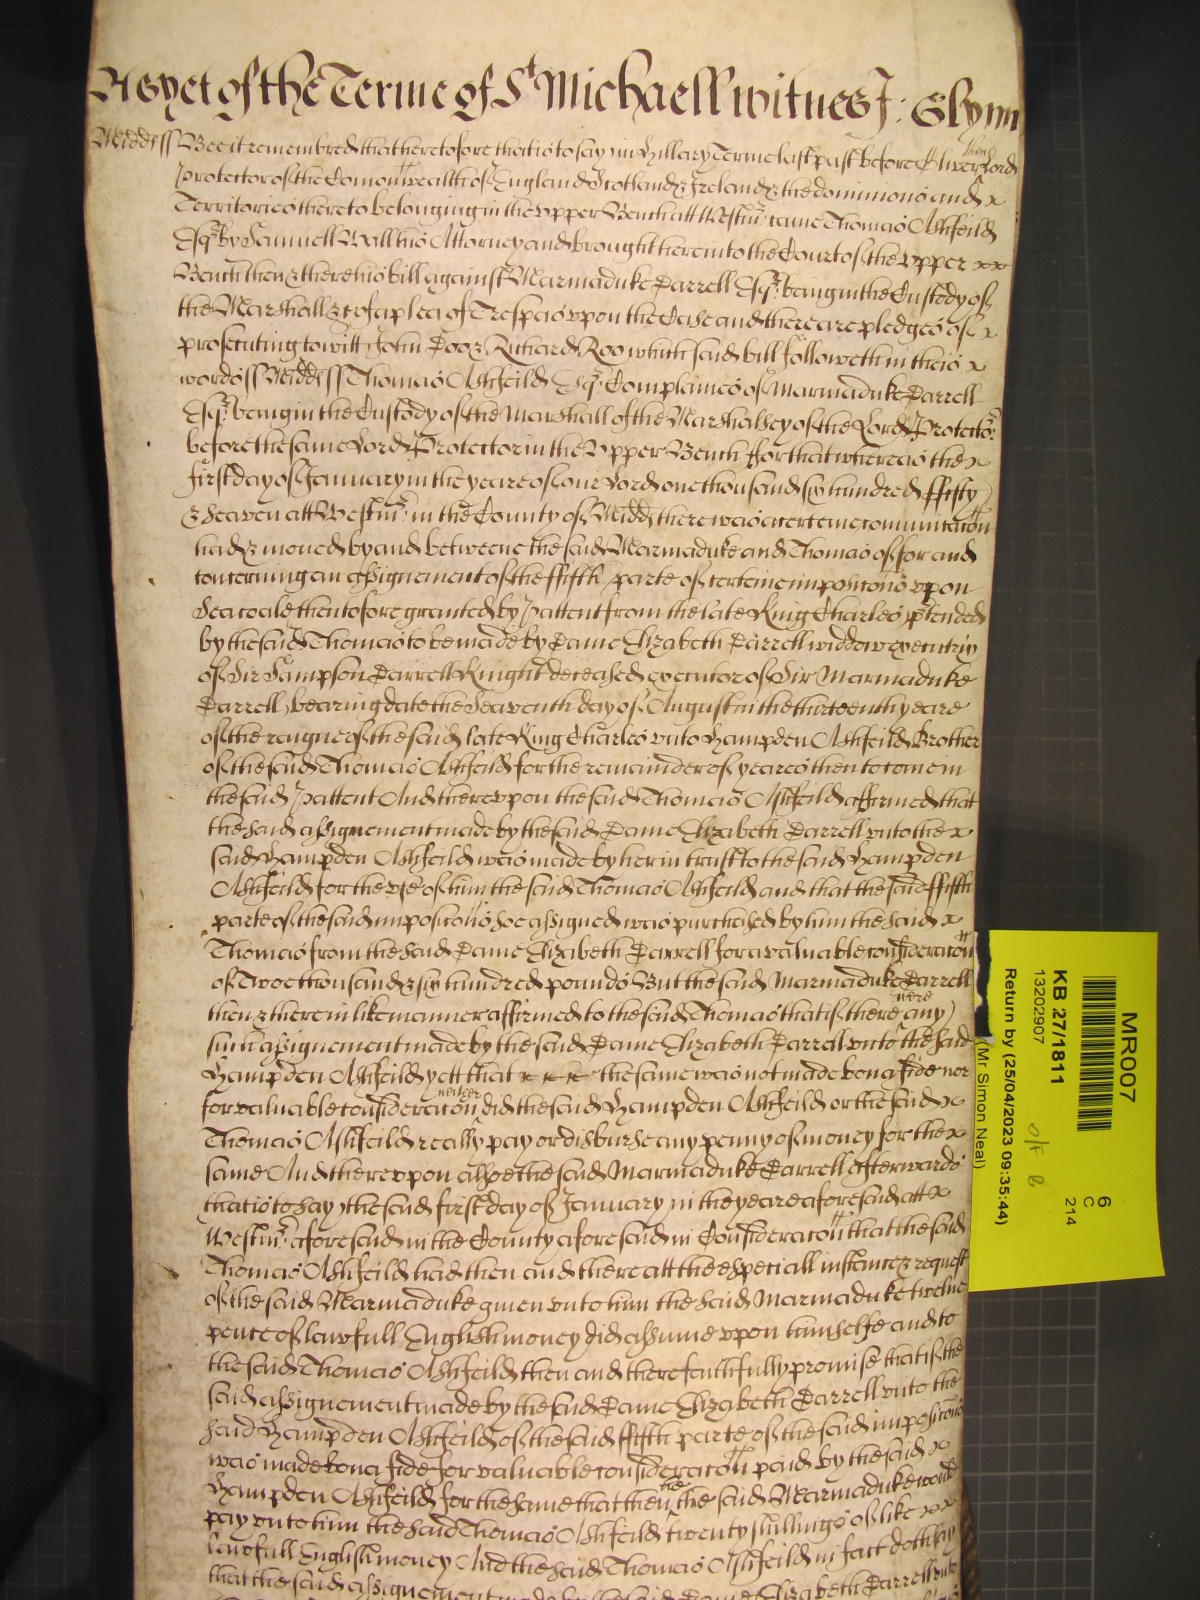 As yet of the Terme of St Michaell witnes J: Glynn
Middss Bee it remembred that heretofore that is to say in Hillary Terme last past before Oliver then Lord
Protector of the Comonwealth of England Scotland & Ireland & the dominions and x
Territories thereto belonging in the vpper Bench att Westmr came Thomas Ashfeild
Esqr by Samuell Wall his Attorney and brought here into the Court of the vpper xx
Bench then & there his bill against Marmaduke Darrell Esqr being in the Custody of
the Marshall &c of a plea of Trespas vpon the Case and there are pledges of x
prosecuting to witt John Doo & Richard Roo which said bill followeth in theis x
words ss Middss Thomas Ashfeild Esqr Complaines of Marmaduke Darrell
Esqr being in the Custody of the Marshall of the Marshalsey of the Lord Protector
before the same Lord Protector in the Vpper Bench ffor that whereas the x
first day of January in the yeare of our Lord one thousand six hundred ffifty
& seaven att Westmr in the County of Midd there was a certeine comunicacon
had & moued by and betweene the said Marmaduke and Thomas of for and
concerning an assignement of the ffifth parte of certeine imposicons vpon
Seacoale thentofore granted by Pattent from the late King Charles p'tended
by the said Thomas to be made by Dame Elizabeth Darrell widdow executrix
of Sir Sampson Darrell Knight deceased executor of Sir Marmaduke
Darrell, bearing date the Seaventh day of August in the thirteenth yeare
of the reigne of the said late King Charles vnto Hampden Ashfeild Brother
of the said Thomas Ashfeild for the remainder of yeares then to come in
the said Pattent And therevpon the said Thomas Ashfeild affirmed that
the said assignement made by the said Dame Elizabeth Darrell vnto the x
said Hampden Ashfeild was made by her in trust to the said Hampden
Ashfeild for the vse of him the said Thomas Ashfeild and that the said ffifth
parte of the said imposicons soe assigned was purchased by him the said x
Thomas from the said Dame Elizabeth Darrell for a valuable consideracon
of Twoe thousand & six hundred pounds But the said Marmaduke Darrell
then & there in like manner affirmed to the said Thomas that if there were any
such assignement made by the said Dame Elizabeth Darrell vnto the said
Hampden Ashfeild yett that x x x the same was not made bona fide nor
for valuable consideracon neither did the said Hampden Ashfeild or the said x
Thomas Ashfeild really pay or disburse any penny of money for the x
same And therevpon alsoe the said Marmaduke Darrell afterwards
that is to say the said first day of January in the yeare aforesaid att x
Westmr aforesaid in the County aforesaid in Consideracon that the said
Thomas Ashfeild had then and there att the especiall instance & request
of the said Marmaduke giuen vnto him the said Marmaduke twelue
pence of lawfull English money did assume vpon himselfe and to
the said Thomas Ashfeild then and there faithfully promise that if the
said assignement made by the said Dame Elizabeth Darrell vnto the
said Hampden Ashfeild of the said ffifth parte of the said imposicons
was made bona fide for valuable consideracon paid by the said x
Hampden Ashfeild for the same that then hee the said Marmaduke would
pay vnto him the said Thomas Ashfeild twenty shillings of like xx
lawfull English money And the said Thomas Ashfeild in fact doth say
that the said assignement made by the said Dame Elizabeth Darrell vnto
MR007
KB 27/1811
13202907
Return by (25/04/2023 09:35:44)
(Mr Simon Neal)
6
C
214